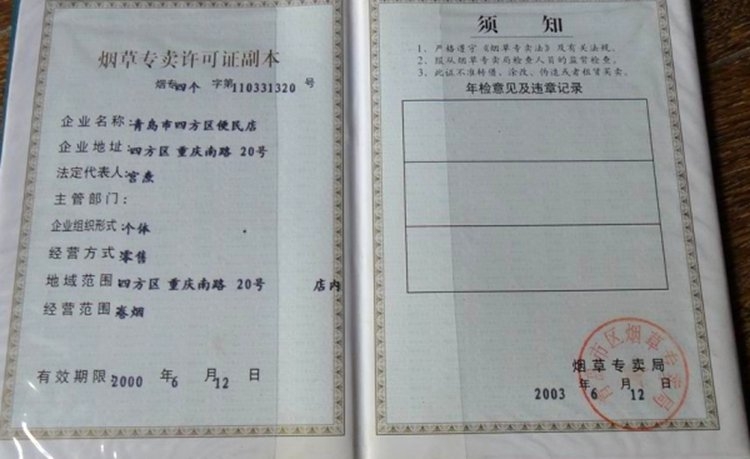 烟草专卖许可证副本
烟专四个 字第110331320 号
企业名称:青岛市四方区便民店
企业地址:四方区 重庆南路 20号
法定代表人:宫焘
主管部门:
企业组织形式:个体
经营方式:零售
地域范围:四方区 重庆南路 20号 店内
经营范围:卷烟
有效期限:2000 年6 月12 日
须 知
1、严格遵守《烟草专卖法》及有关法规。
2、服从烟草专卖局检查人员的监督检查。
3、此证不准转借、涂改、伪造或者租赁买卖。
年检意见及违章记录
烟草专卖局
2003 年6 月12 日
市区烟草专卖局